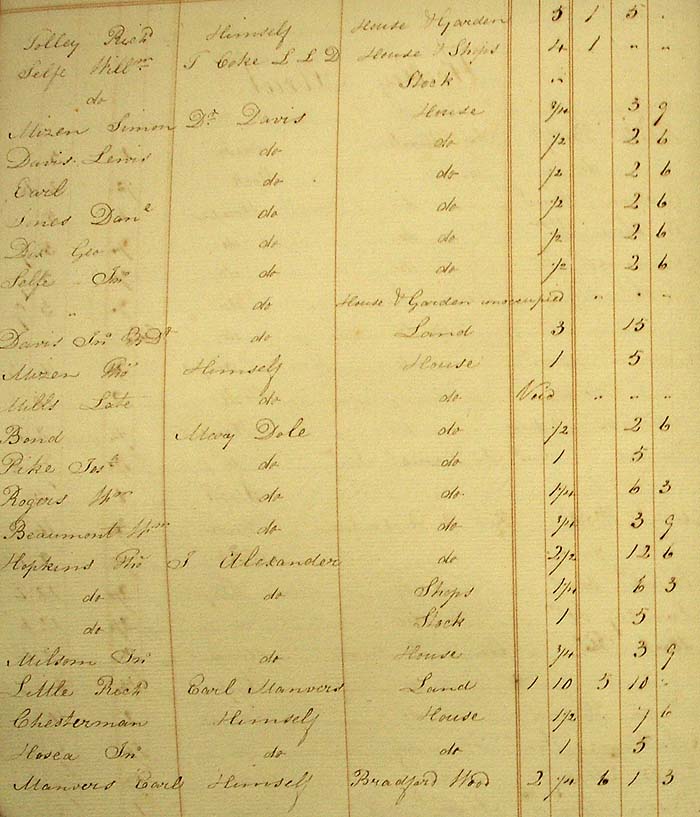 Tolley Richd Himself House & Garden 5 1 5 "
Selfe Willm T Coke L L D House & Shops 4 1 " "
do Stock "
Mizen Simon Dr Davis House 3/4 3 9
Davis Lewis do do 1/2 2 6
Earl do do 1/2 2 6
Jones Danl do do 1/2 2 6
Dix Geo do do 1/2 2 6
Selfe Jno do do 1/2 2 6
" do House & Garden unoccupied " " "
Davis Jno do Land 3 15
Mizen Tho Himself House 1 5
Mills Late do do Void " " "
Bond Mary Dole do 1/2 2 6
Pike Josh do do 1 5
Rogers Wm do do 1 1/4 6 3
Beaumont Wm do do 3/4 3 9
Hopkins Tho J Alexander do 2 1/2 12 6
do do Shops 1 1/4 6 3
do Stock 1 5
Milsom Jno do House 3/4 3 9
Little Richd Earl Manvers Land 1 10 5 10 "
Chesterman Himself House 1 1/2 7 6
Hosea Jno do do 1 5
Manvers Earl Himself Bradford Wood 2 1/4 6 1 3